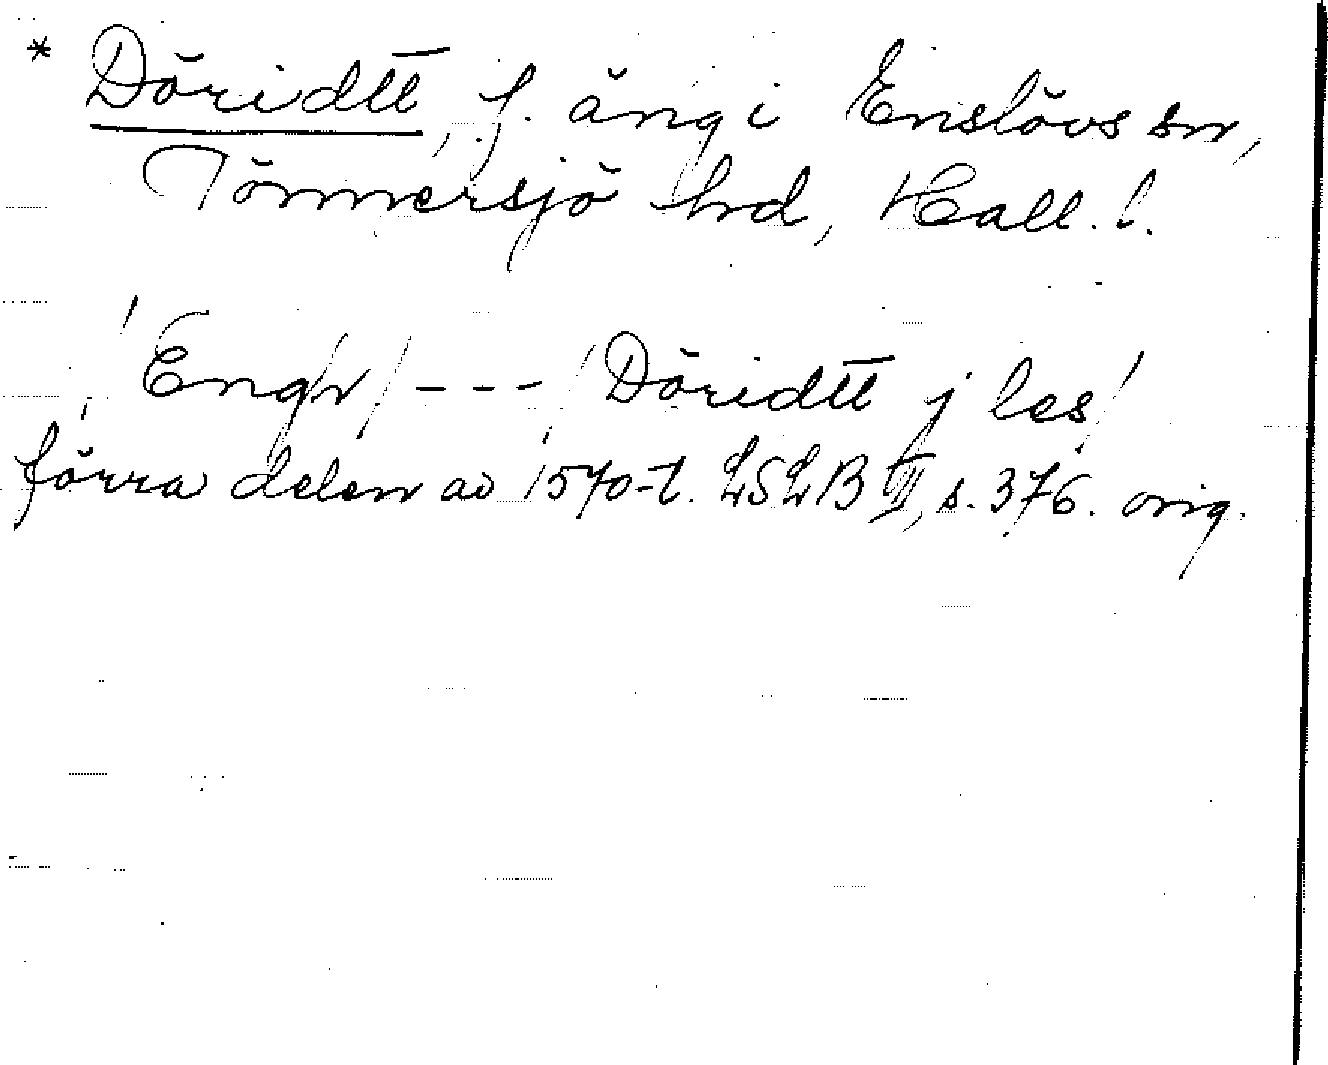 * Döridtt, f. äng i Enslövs sn,
Tönnersjö hd, Hall. l.
/Engh/ - - - /Döridtt j les/
förra delen av 1570-t. LSLB II, s. 376. orig.